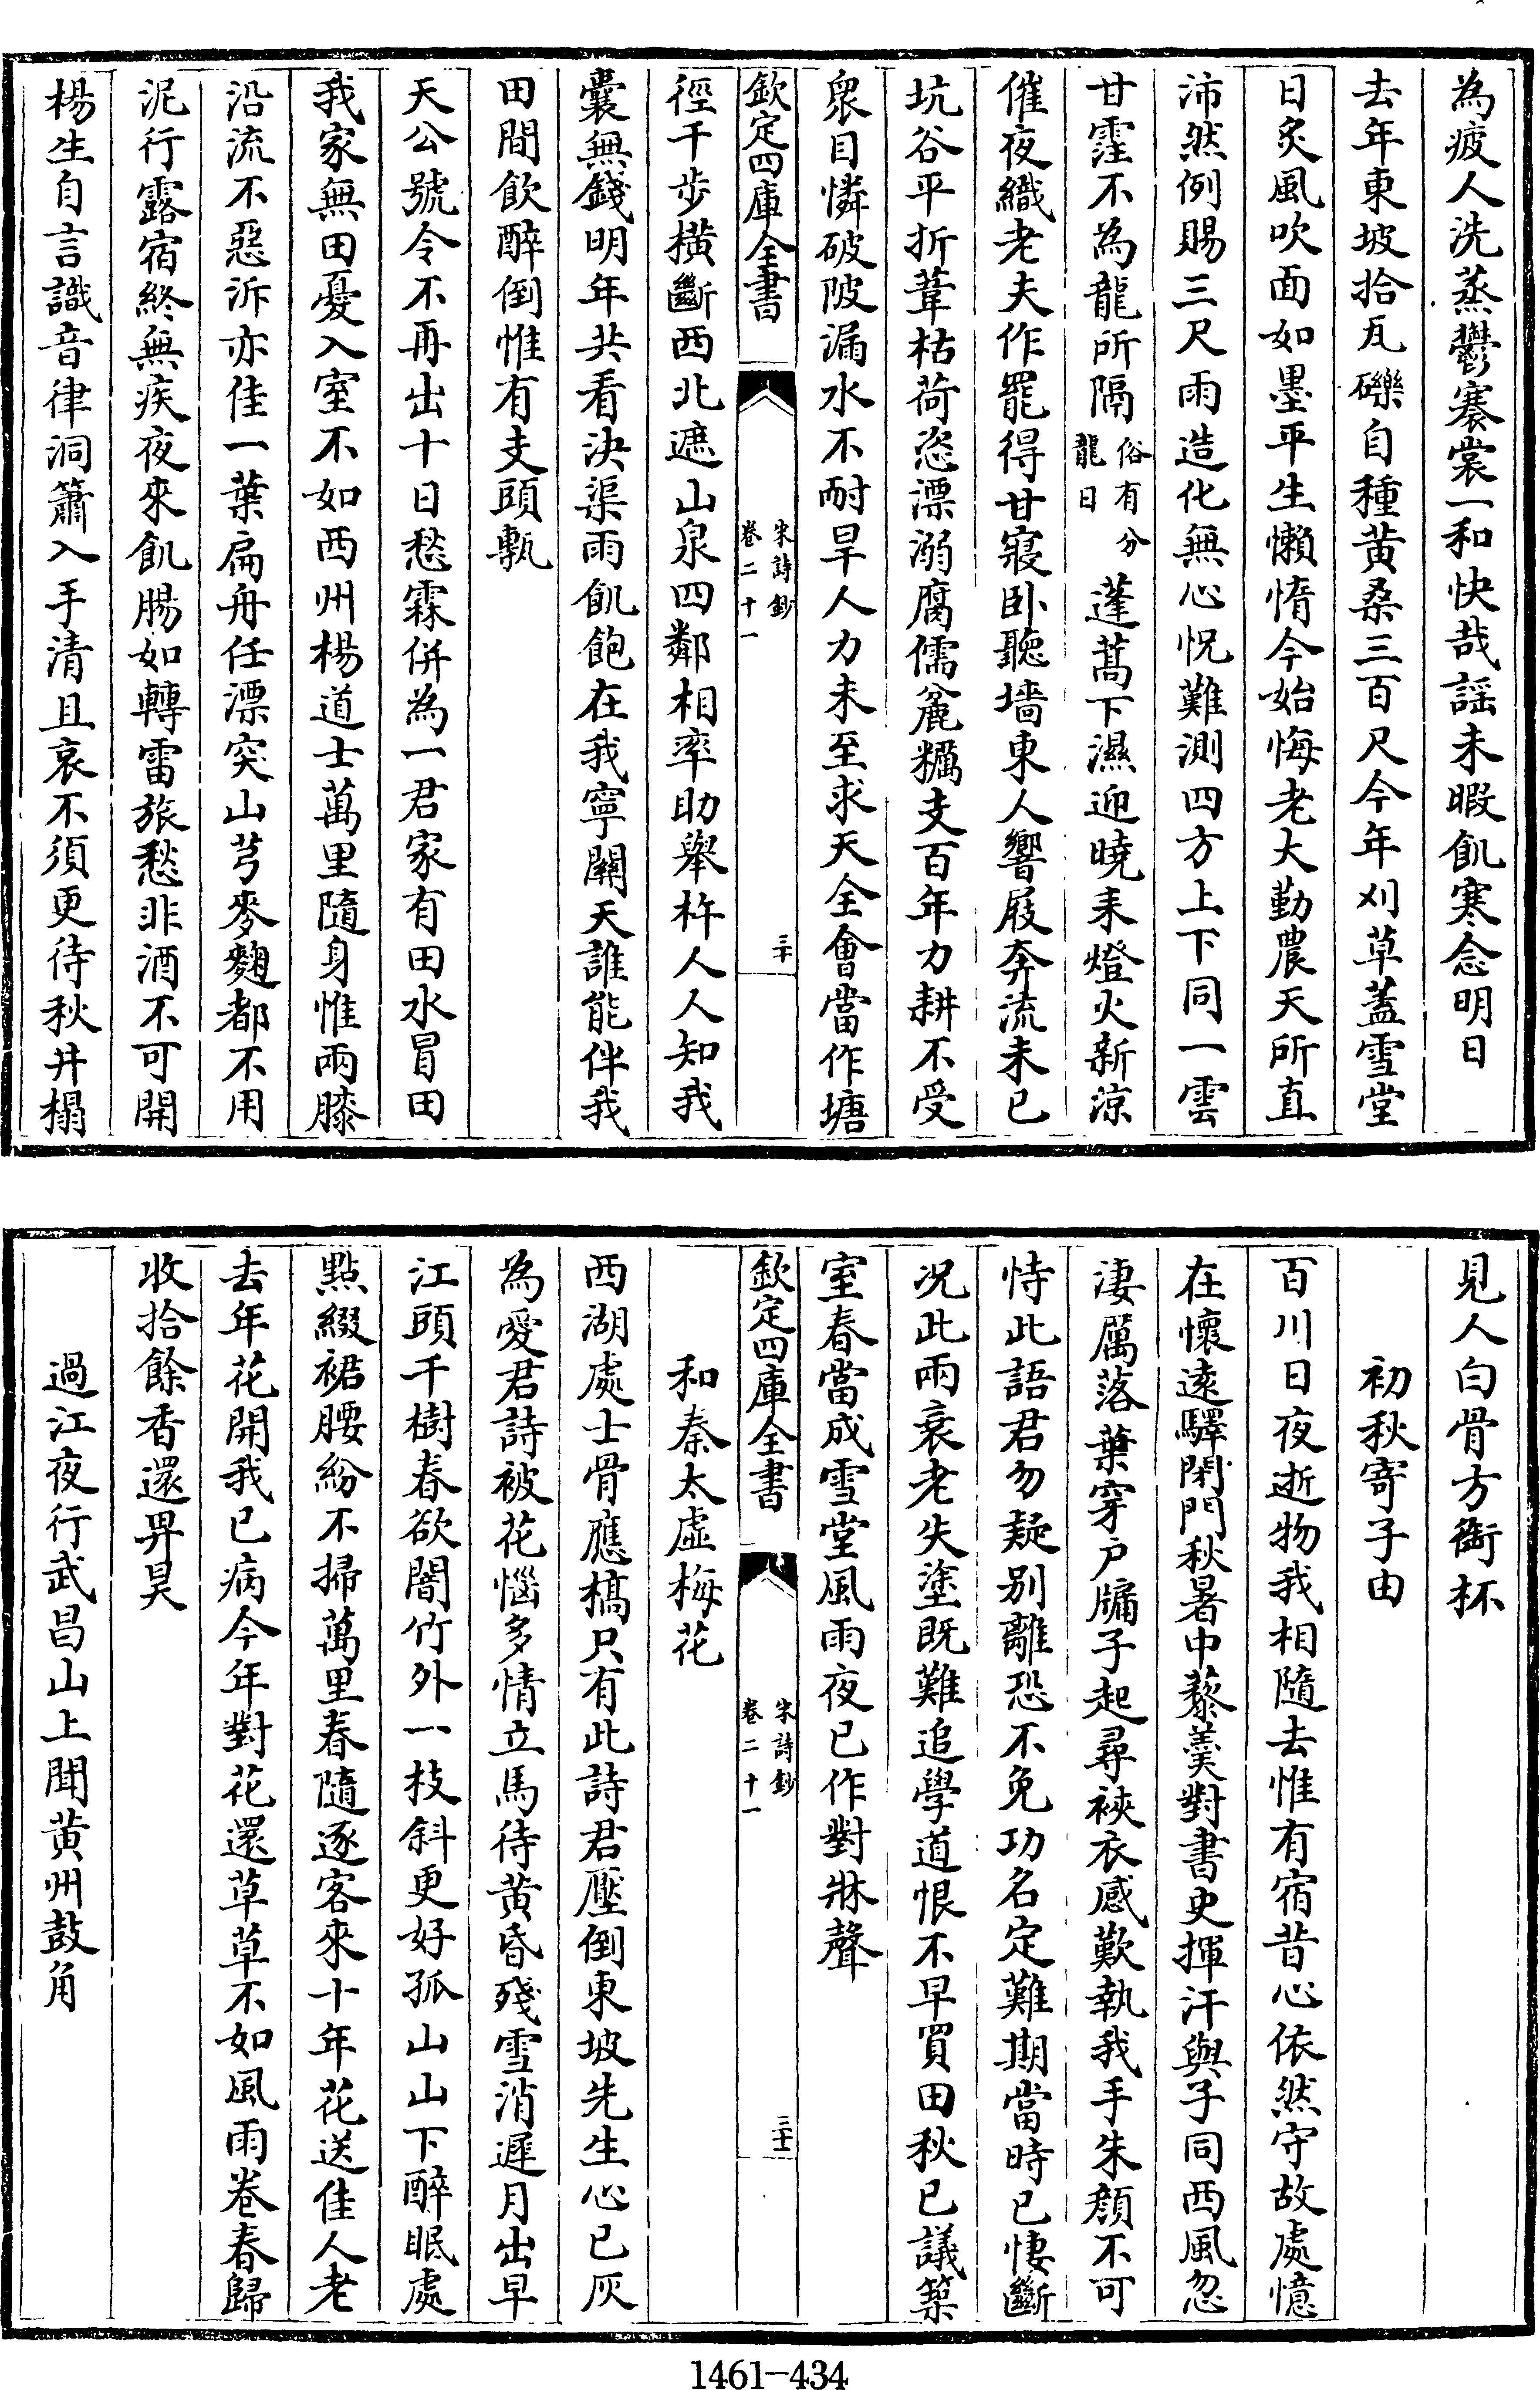 為疲人洗蒸鬱褰裳一和快哉謡未暇飢寒念明日
去年東坡拾瓦礫自種黄桑三百尺今年刈草葢雪堂
日炙風吹面如墨平生懶惰今始悔老大勤農天所直
沛然例賜三尺雨造化無心怳難測四方上下同一雲
甘霔不為龍所隔俗有分龍日蓬蒿下濕迎曉耒燈火新涼
催夜織老夫作罷得甘寢卧聽墻東人響屐奔流未已
坑谷平折葦枯荷恣漂溺腐儒麄糲支百年力耕不受
衆目憐破陂漏水不耐旱人力未至求天全會當作塘
欽定四庫全書 宋詩鈔 卷二十一 三十
徑千步橫斷西北遮山泉四鄰相率助舉杵人人知我
囊無錢明年共看決渠雨飢飽在我寧關天誰能伴我
田間飲醉倒惟有支頭甎
天公號令不再出十日愁霖併為一君家有田水冒田
我家無田憂入室不如西州楊道士萬里隨身惟兩膝
沿流不惡泝亦佳一葉扁舟任漂突山芎麥麴都不用
泥行露宿終無疾夜來飢腸如轉雷旅愁非酒不可開
楊生自言識音律洞簫入手清且哀不須更待秋井榻
見人白骨方銜杯
初秋寄子由
百川日夜逝物我相隨去惟有宿昔心依然守故處憶
在懷遠驛閉門秋暑中藜羹對書史揮汗與子同西風忽
淒厲落葉穿户牖子起尋裌衣感歎執我手朱顔不可
恃此語君勿疑别離恐不免功名定難期當時已悽斷
况此兩衰老失塗既難追學道恨不早買田秋已議築
室春當成雪堂風雨夜已作對牀聲
欽定四庫全書 宋詩鈔 卷二十一 三十一
和秦太虛梅花
西湖處士骨應槁只有此詩君壓倒東坡先生心已灰
為愛君詩被花惱多情立馬待黄昏殘雪消遲月出早
江頭千樹春欲闇竹外一枝斜更好孤山山下醉眠處
點綴裙腰紛不掃萬里春隨逐客來十年花送佳人老
去年花開我已病今年對花還草草不如風雨卷春歸
收拾餘香還畀昊
過江夜行武昌山上聞黄州鼓角
1461-434